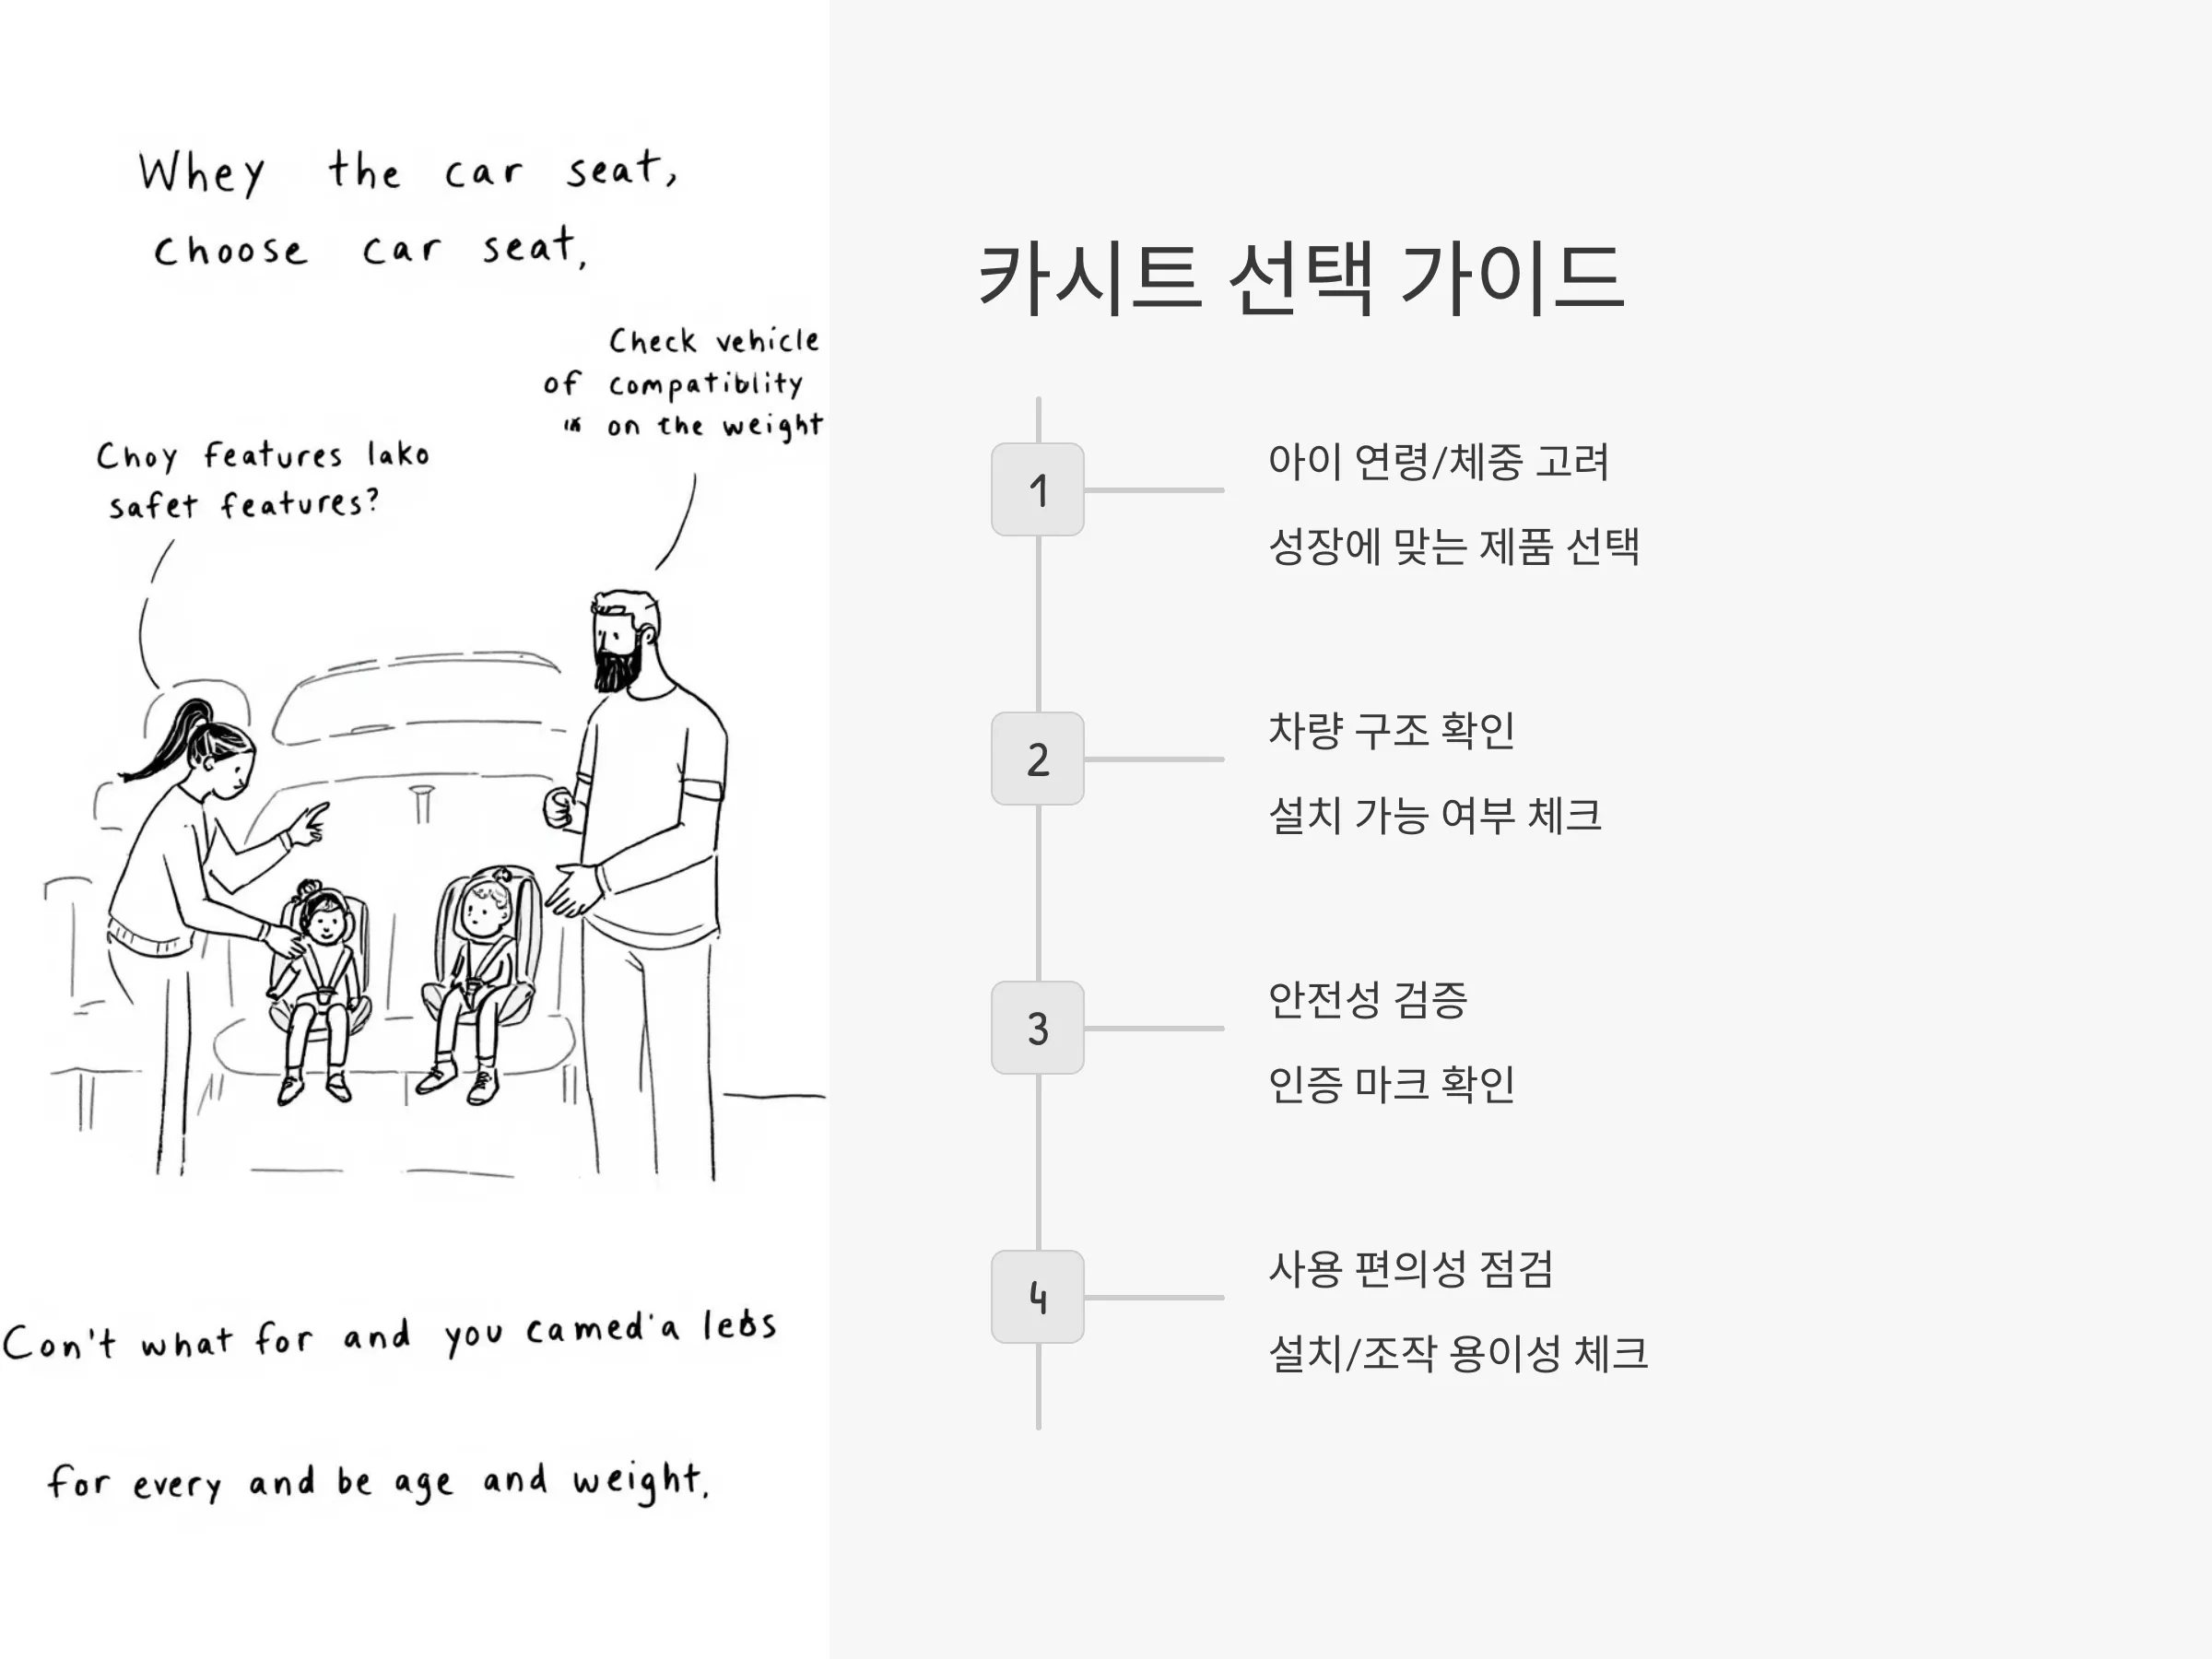 Whey the car seat,
choose car seat,
Check vehicle
of compatiblity
on the weight
Choy features lako
safet features?
Con't what for and you camed'a
for every and be age and weight.
카시트 선택 가이드
1
아이 연령/체중 고려
성장에 맞는 제품 선택
2
차량 구조 확인
설치 가능 여부 체크
3
안전성 검증
인증 마크 확인
4
사용 편의성 점검
설치/조작 용이성 체크